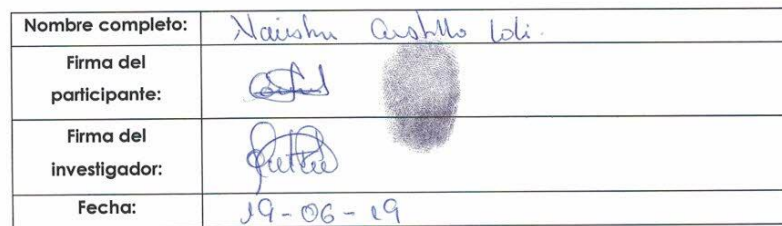 Nombre completo: Castillo Loli.
Firma del
participante:
Firma del
investigador:
Fecha: 19-06-19